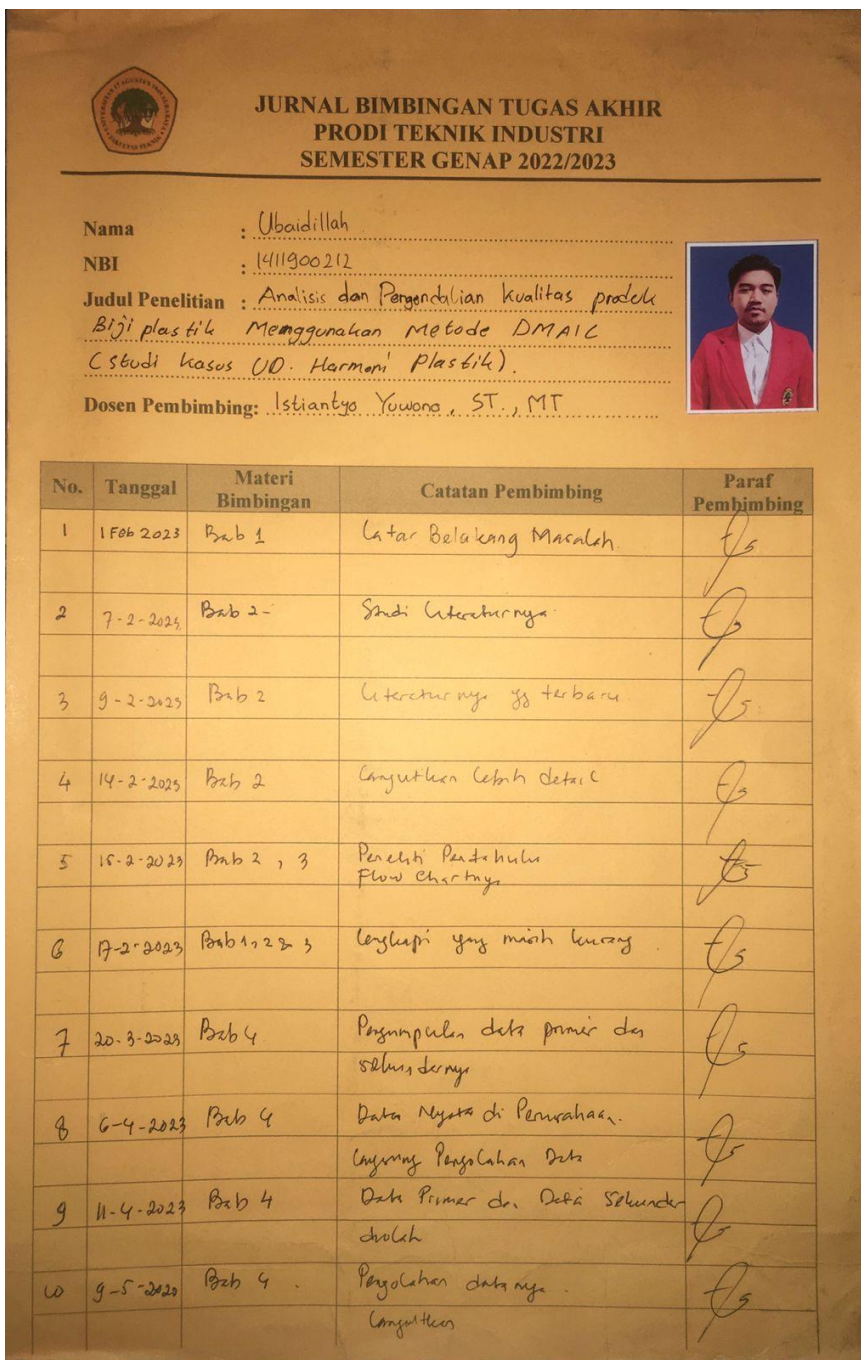 UNIVERSITAS 17 AGUSTUS 1945 SURABAYA
FAKULTAS TEKNIK
JURNAL BIMBINGAN TUGAS AKHIR
PRODI TEKNIK INDUSTRI
SEMESTER GENAP 2022/2023
Nama : Ubaidillah
NBI : 1411900212
Judul Penelitian : Analisis dan Pengendalian kualitas produk
Biji plastik Menggunakan Metode DMAIC
(Studi kasus UD. Harmoni Plastik).
Dosen Pembimbing: Istiantyo Yuwono, ST., MT
No. Tanggal Materi Bimbingan Catatan Pembimbing Paraf Pembimbing
1 1 Feb 2023 Bab 1 Latar Belakang Masalah.
2 7-2-2023 Bab 2- Studi Literaturnya
3 9-2-2023 Bab 2 Literaturnya yg terbaru
4 14-2-2023 Bab 2 Lanjutkan lebih detail
5 15-2-2023 Bab 2, 3 Peneliti
Flow Chartnya
6 17-2-2023 Bab 1, 2 & 3 Lengkapi yang masih kurang
7 20-3-2023 Bab 4 Pengumpulan data primer dan
sekundernya
8 6-4-2023 Bab 4 Data Nyata di Perusahaan.
Langsung Pengolahan Data
9 11-4-2023 Bab 4 Data Primer dan Data Sekunder
diolah
10 9-5-2020 Bab 4 . Pengolahan datanya .
Lanjutkan